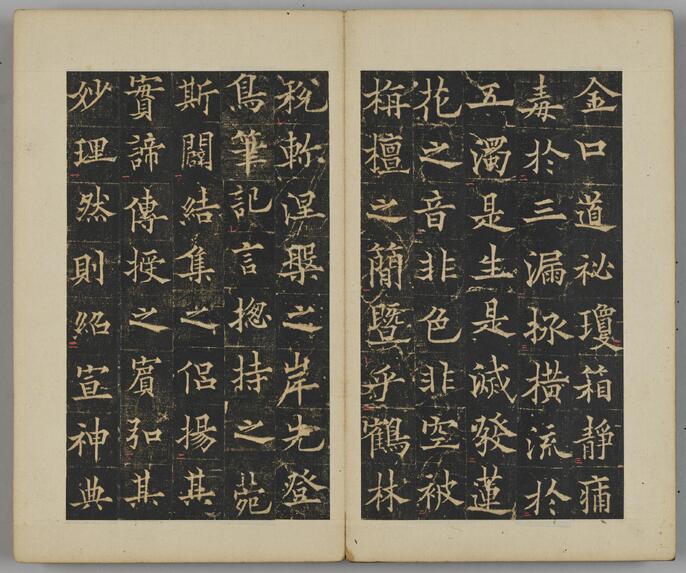 金口道祕瓊箱靜痛
毒於三漏拯橫流於
五濁是生是滅發蓮
花之音非色非空被
栴檀之簡暨乎鶴林
稅軫涅槃之岸先登
鳥筆記言揔持之菀
斯闢結集之侶揚其
實諦傳授之賓弘其
妙理然則紹宣神典